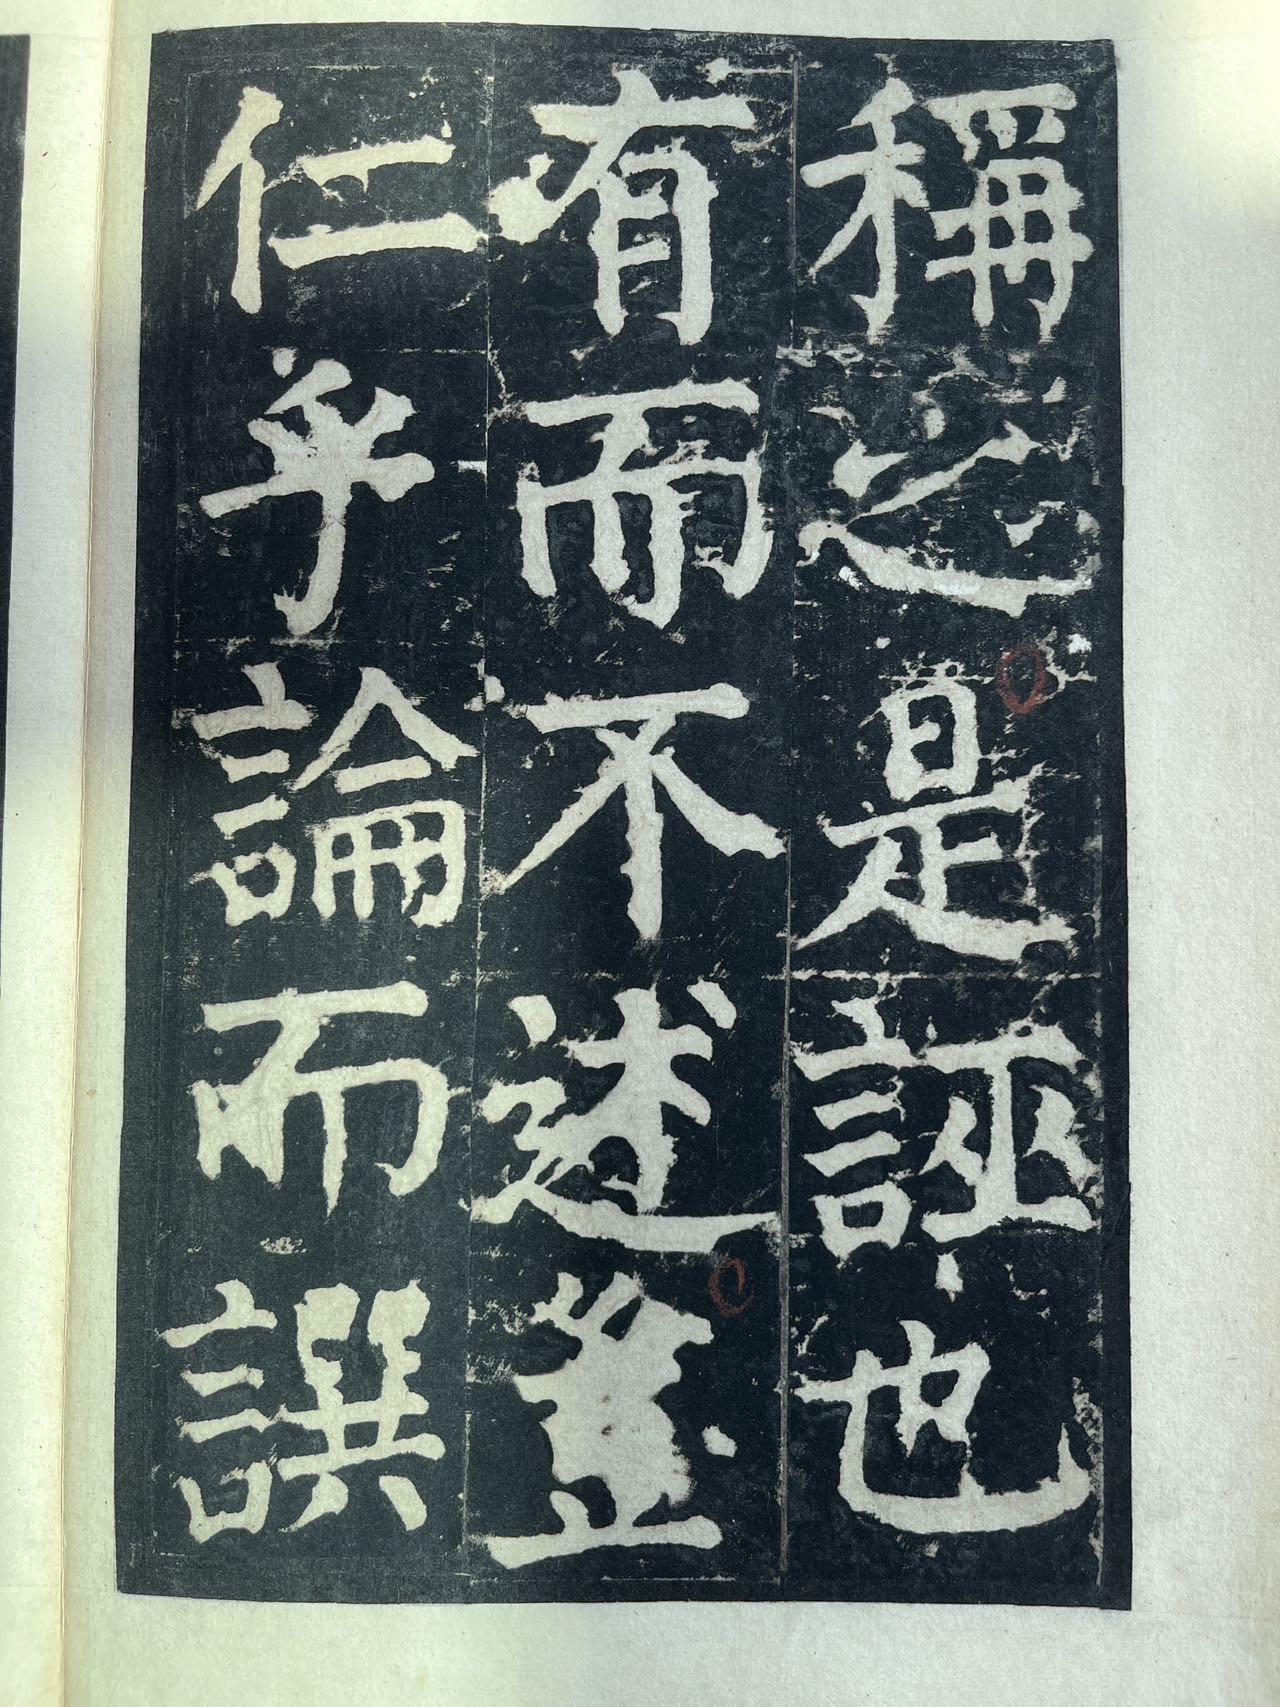 稱之是誣也
有而不述豈
仁乎論而譔